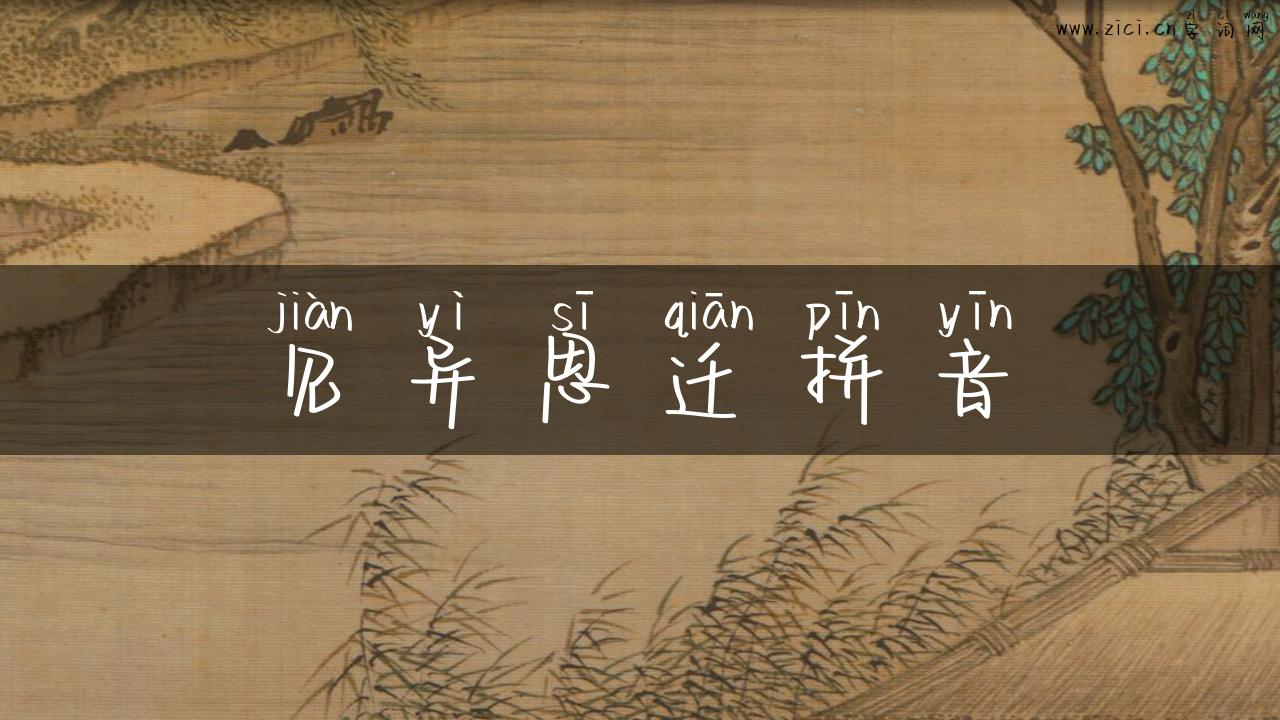 zì cí wǎng
www.zici.cn字词网
jiàn yì sī qiān pīn yīn
见异思迁拼音